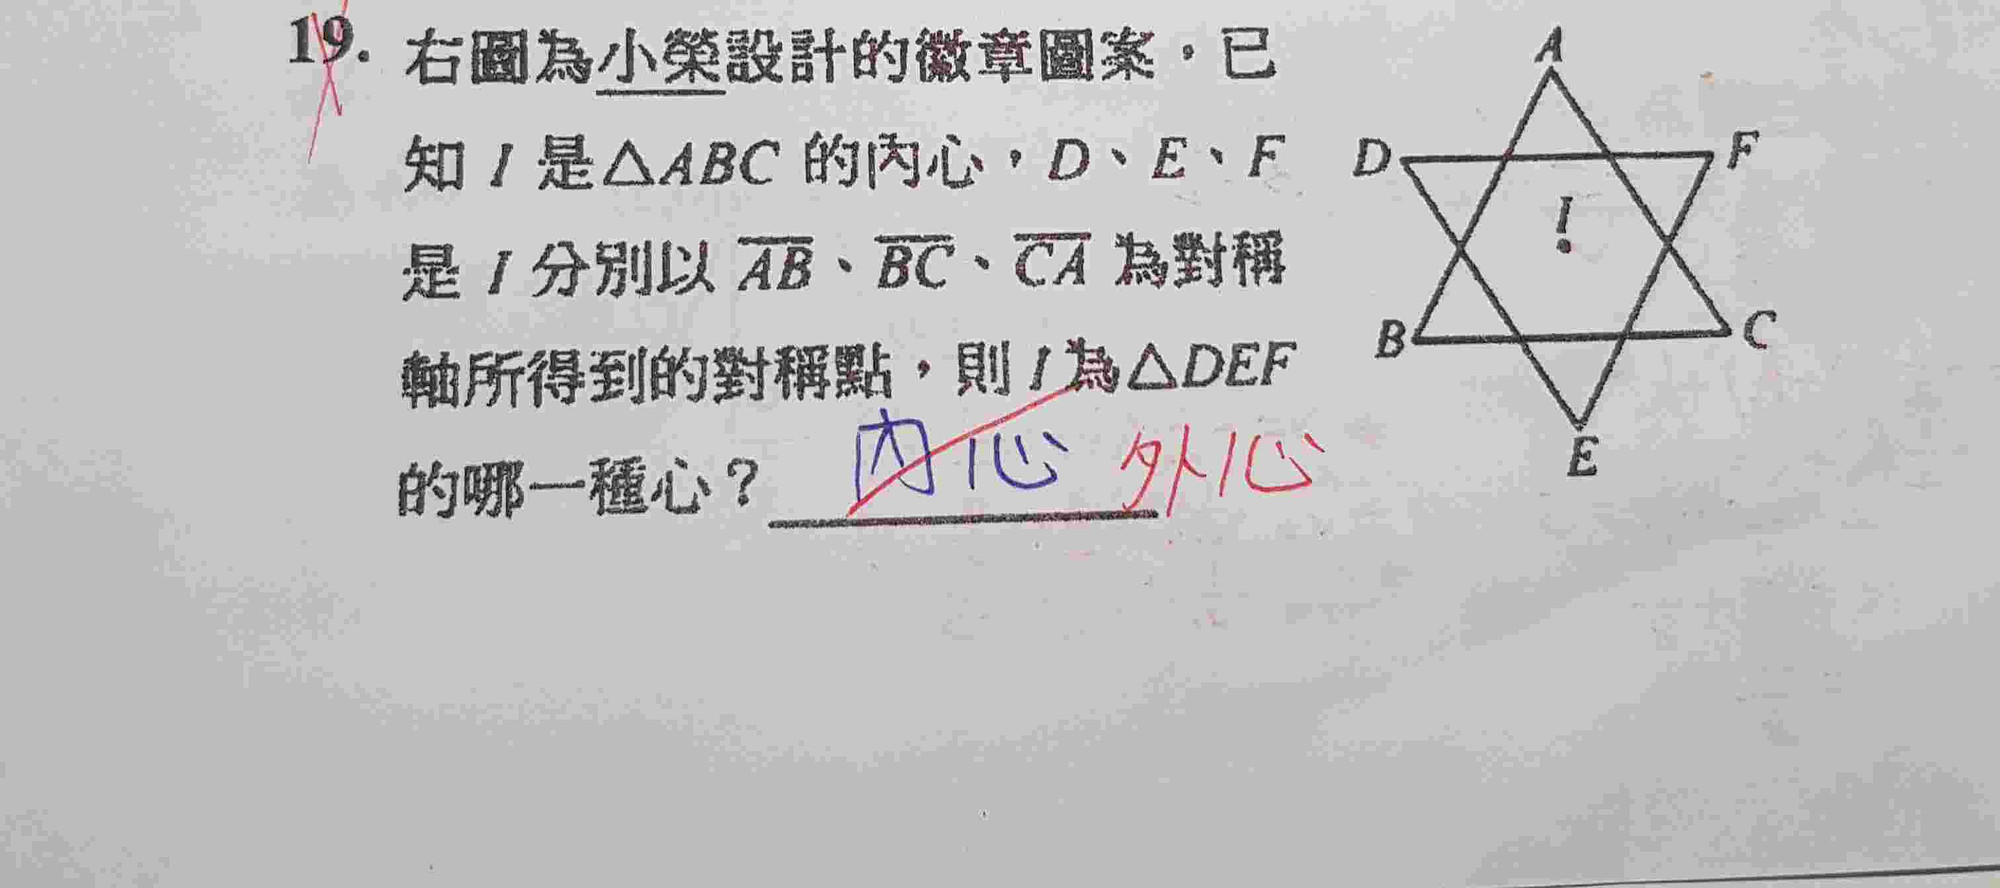 19. 右圖為小榮設計的徽章圖案，已
知 I 是△ABC 的內心，D、E、F
是 I 分別以 AB、BC、CA 為對稱
軸所得到的對稱點，則 I 為△DEF
的哪一種心？ 內心 外心
A
D
F
I
B
C
E